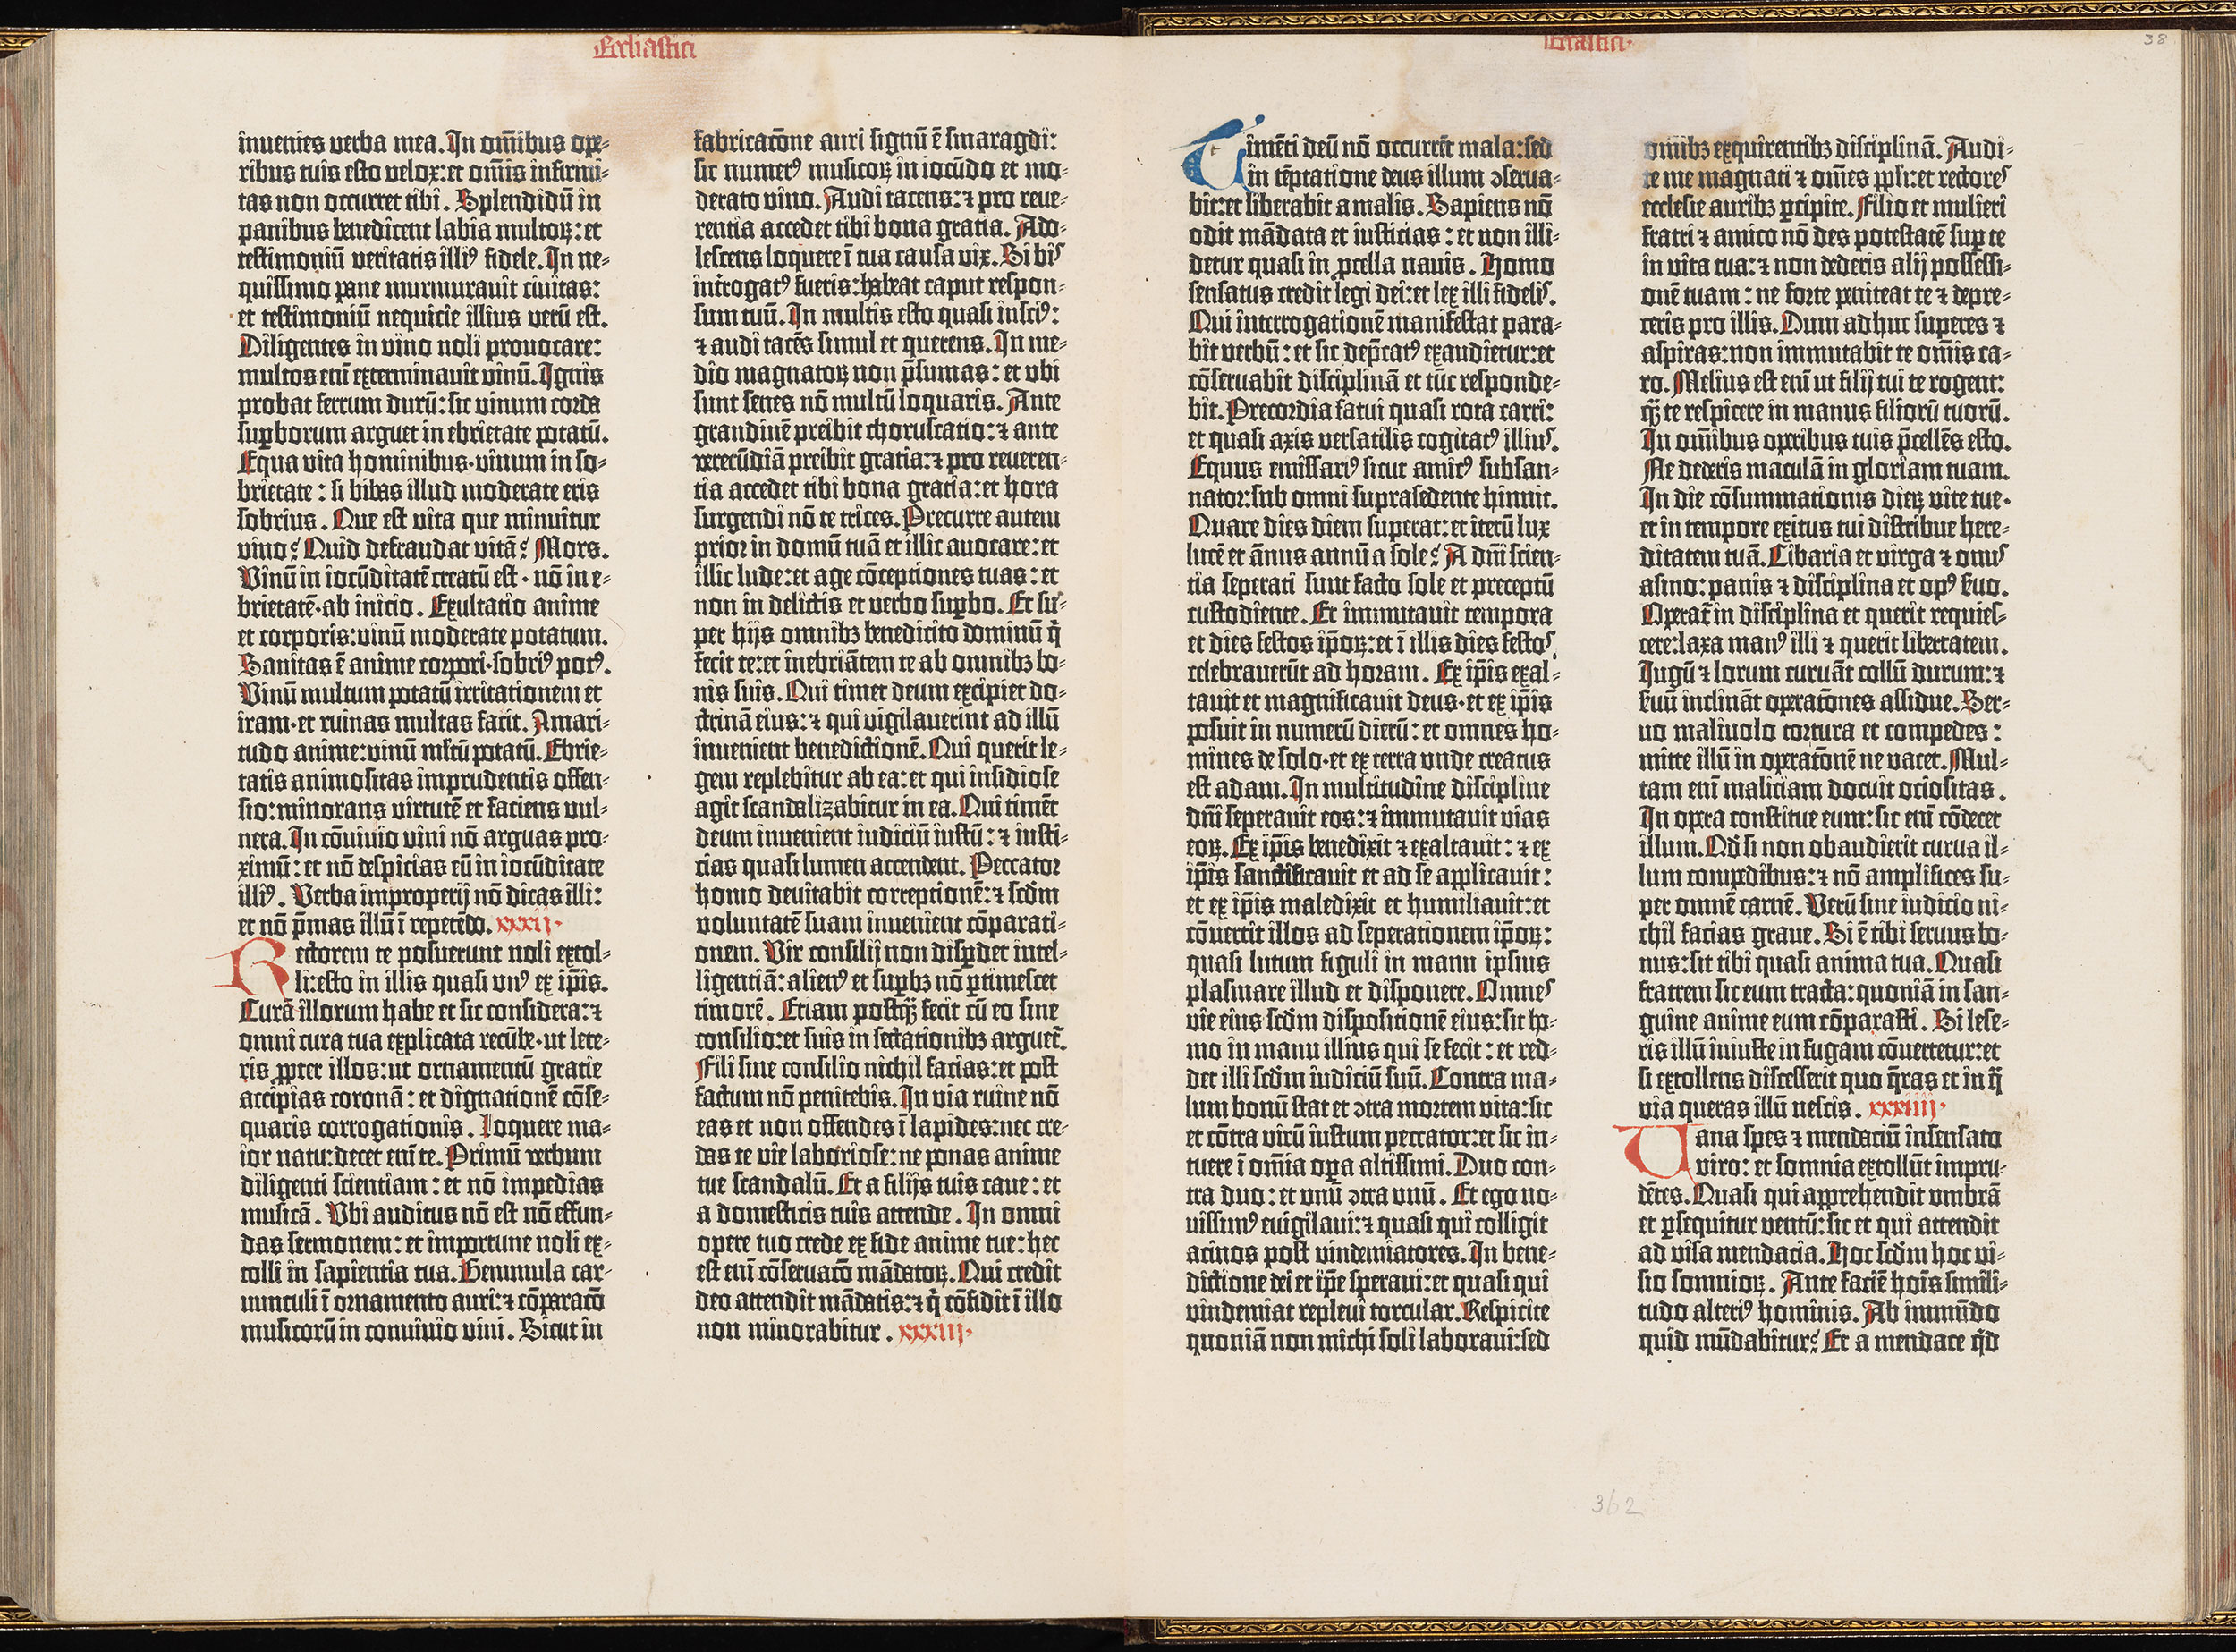 Ecclīastici
inuenies verba mea. In om̄ibus ope-
ribus tuis esto velox: et om̄is infirmi-
tas non occurret tibi. Splendidū in
panibus benedicent labia multoꝝ: et
testimoniū veritatis illi⁹ fidele. In ne-
quissimo pane murmurauit ciuitas:
et testimoniū nequicie illius verū est.
Diligentes in vino noli prouocare:
multos em̄ exterminauit vinū. Ignis
probat ferrum durū: sic vinum corda
suꝑborum arguet in ebrietate potatū.
Equa vita hominibus·vinum in so-
brietate: si bibas illud moderate eris
sobrius. Que est vita que minuitur
vino? Quid defraudat vitā? Mors.
Vinū in iocūditatē creatū est·nō in e-
brietatē·ab inicio. Exultatio anime
et corporis: vinū moderate potatum.
Sanitas ē anime corpori·sobri⁹ pot⁹.
Vinū multum potatū irritationem et
iram·et ruinas multas facit. Amari-
tudo anime: vinū ml̄tū potatū. Ebrie-
tatis animositas imprudentis offen-
sio: minorans virtutē et faciens vul-
nera. In cōuiuio vini nō arguas pro-
ximū: et nō despicias eū in iocūditate
illi⁹. Verba improperij nō dicas illi:
et nō p̄mas illū ī repetēdo. xxxij·
Rectorem te posuerunt noli extol-
li: esto in illis quasi vn⁹ ex ip̄is.
Curā illorum habe et sic considera: ⁊
omni cura tua explicata recūbe·ut lete-
ris ꝓpter illos: ut ornamentū gratie
accipias coronā: et dignationē cōse-
quaris corrogationis. Loquere ma-
ior natu: decet em̄ te. Primū verbum
diligenti scientiam: et nō impedias
musicā. Vbi auditus nō est nō effun-
das sermonem: et importune noli ex-
tolli in sapientia tua. Gemmula car-
nunculi ī ornamento auri: ⁊ cōparacō
musicorū in conuiuio vini. Sicut in
fabricacōne auri signū ē smaragdi:
sic numer⁹ musicoꝝ in iocūdo et mo-
derato vino. Audi tacens: ⁊ pro reue-
rentia accedet tibi bona gratia. Ado-
lescens loquere ī tua causa vix. Si bis
int̄rogat⁹ fueris: habeat caput respon-
sum tuū. In multis esto quasi insci⁹:
⁊ audi tacēs simul et querens. In me-
dio magnatoꝝ non p̄sumas: et vbi
sunt senes nō multū loquaris. Ante
grandinē preibit choruscatio: ⁊ ante
verecūdiā preibit gratia: ⁊ pro reueren-
tia accedet tibi bona gratia: et hora
surgendi nō te trices. Precurre autem
prior in domū tuā et illic auocare: et
illic lude: et age cōceptiones tuas: et
non in delictis et verbo suꝑbo. Et su-
per hijs omnibꝫ benedicito dominū q̇
fecit te: et inebriātem te ab omnibꝫ bo-
nis suis. Qui timet deum excipiet do-
ctrinā eius: ⁊ qui vigilauerint ad illū
inuenient benedictionē. Qui querit le-
gem replebitur ab ea: et qui insidiose
agit scandalizabitur in ea. Qui timēt
deum inuenient iudiciū iustū: ⁊ iusti-
cias quasi lumen accendent. Peccator
homo deuitabit correptionē: ⁊ scd̄m
voluntatē suam inuenient cōparati-
onem. Vir consilij non disꝑdet intel-
ligentiā: alien⁹ et suꝑbꝫ nō ꝑtimescet
timorē. Etiam postq̄ꝫ fecit cū eo sine
consilio: et suis in sectationibꝫ arguet̄.
Fili sine consilio nichil facias: et post
factum nō penitebis. In via ruine nō
eas et non offendes ī lapides: nec cre-
das te vie laboriose: ne ponas anime
tue scandalū. Et a filijs tuis caue: et
a domesticis tuis attende. In omni
opere tuo crede ex fide anime tue: hec
est em̄ cōseruacō mādatoꝝ. Qui credit
deo attendit mādatis: ⁊ q̇ cōfidit ī illo
non minorabitur. xxxiij·
38
Timēti deū nō occurrēt mala: sed
in tēptatione deus illum ↄserua-
bit: et liberabit a malis. Sapiens nō
odit mādata et iusticias: et non illi-
detur quasi in ꝓcella nauis. Homo
sensatus credit legi dei: et lex illi fidelis.
Qui interrogationē manifestat para-
bit verbū: et sic dep̄cat⁹ exaudietur: et
cōseruabit disciplinā et tūc responde-
bit. Precordia fatui quasi rota carri:
et quasi axis versatilis cogitat⁹ illius.
Equus emissari⁹ sicut amic⁹ subsan-
nator: sub omni suprasedente hinnit.
Quare dies diem superat: et iterū lux
lucē et ānus annū a sole? A dn̄i scien-
tia seperati sunt facto sole et preceptū
custodiente. Et immutauit tempora
et dies festos ip̄oꝝ: et ī illis dies festos
celebrauerūt ad horam. Ex ip̄is exal-
tauit et magnificauit deus·et ex ip̄is
posuit in numerū dierū: et omnes ho-
mines de solo·et ex terra vnde creatus
est adam. In multitudine discipline
dn̄i seperauit eos: ⁊ immutauit vias
eoꝝ. Ex ip̄is benedixit ⁊ exaltauit: ⁊ ex
ip̄is sanctificauit et ad se applicauit:
et ex ip̄is maledixit et humiliauit: et
cōuertit illos ad seperationem ip̄oꝝ:
quasi lutum figuli in manu ipsius
plasmare illud et disponere. Omnes
vie eius scd̄m dispositionē eius: sic ho-
mo in manu illius qui se fecit: et red-
det illi scd̄m iudiciū suū. Contra ma-
lum bonū stat et ↄtra mortem vita: sic
et cōtra virū iustum peccator: et sic in-
tuere ī om̄ia oꝑa altissimi. Duo con-
tra duo: et vnū ↄtra vnū. Et ego no-
uissim⁹ euigilaui: ⁊ quasi qui colligit
acinos post vindemiatores. In bene-
dictione dei et ip̄e speraui: et quasi qui
vindemiat repleui torcular. Respicite
quoniā non michi soli laboraui: sed
om̄ibꝫ exquirentibꝫ disciplinā. Audi-
te me magnati ⁊ om̄es ppl̄i: et rectores
ecclesie auribꝫ ꝑcipite. Filio et mulieri
fratri ⁊ amico nō des potestatē suꝑ te
in vita tua: ⁊ non dederis alij possessi-
onē tuam: ne forte peniteat te ⁊ depre-
ceris pro illis. Dum adhuc superes ⁊
aspiras: non immutabit te om̄is ca-
ro. Melius est em̄ ut filij tui te rogent:
q̄ꝫ te respicere in manus filiorū tuorū.
In om̄ibus operibus tuis p̄cellēs esto.
Ne dederis maculā in gloriam tuam.
In die cōsummationis dieꝝ vite tue·
et in tempore exitus tui distribue here-
ditatem tuā. Cibaria et virga ⁊ onus
asino: panis ⁊ disciplina et op⁹ s̄uo.
Operat̄ in disciplina et querit requies-
cere: laxa man⁹ illi ⁊ querit libertatem.
Iugū ⁊ lorum curuāt collū durum: ⁊
s̄uū inclināt operacōnes assidue. Ser-
uo maliuolo tortura et compedes:
mitte illū in operacōnē ne vacet. Mul-
tam em̄ maliciam docuit ociositas.
In opera constitue eum: sic em̄ cōdecet
illum. Qd̄ si non obaudierit curua il-
lum compedibus: ⁊ nō amplifices su-
per omnē carnē. Verū sine iudicio ni-
chil facias graue. Si ē tibi seruus bo-
nus: sit tibi quasi anima tua. Quasi
fratrem sic eum tracta: quoniā in san-
guine anime eum cōparasti. Si lese-
ris illū iniuste in fugam cōuertetur: et
si extollens discesserit quo q̄ras et in q̄
via queras illū nescis. xxxiiij·
Vana spes ⁊ mendaciū insensato
viro: et somnia extollūt impru-
dētes. Quasi qui apprehendit vmbrā
et ꝑsequitur ventū: sic et qui attendit
ad visa mendacia. Hoc scd̄m hoc vi-
sio somnioꝝ. Ante faciē hoīs simili-
tudo alteri⁹ hominis. Ab immūdo
quid mūdabitur? Et a mendace q̇d
362